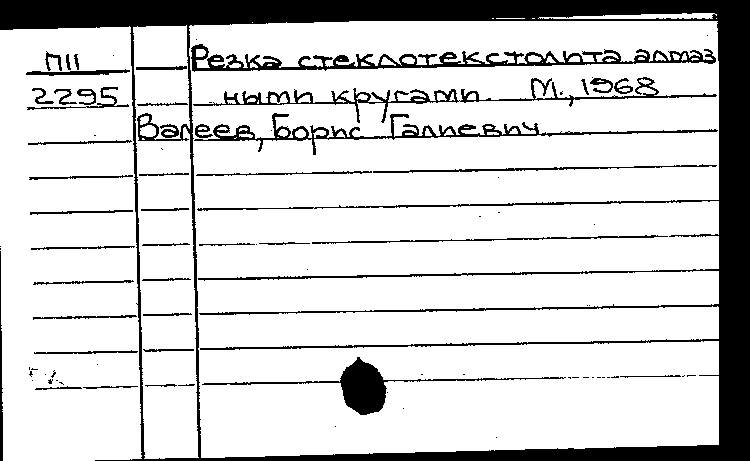 П11 Резка стеклотекстолита алмаз
2295 ными кругами. М., 1968
Валеев, Борис Галиевич